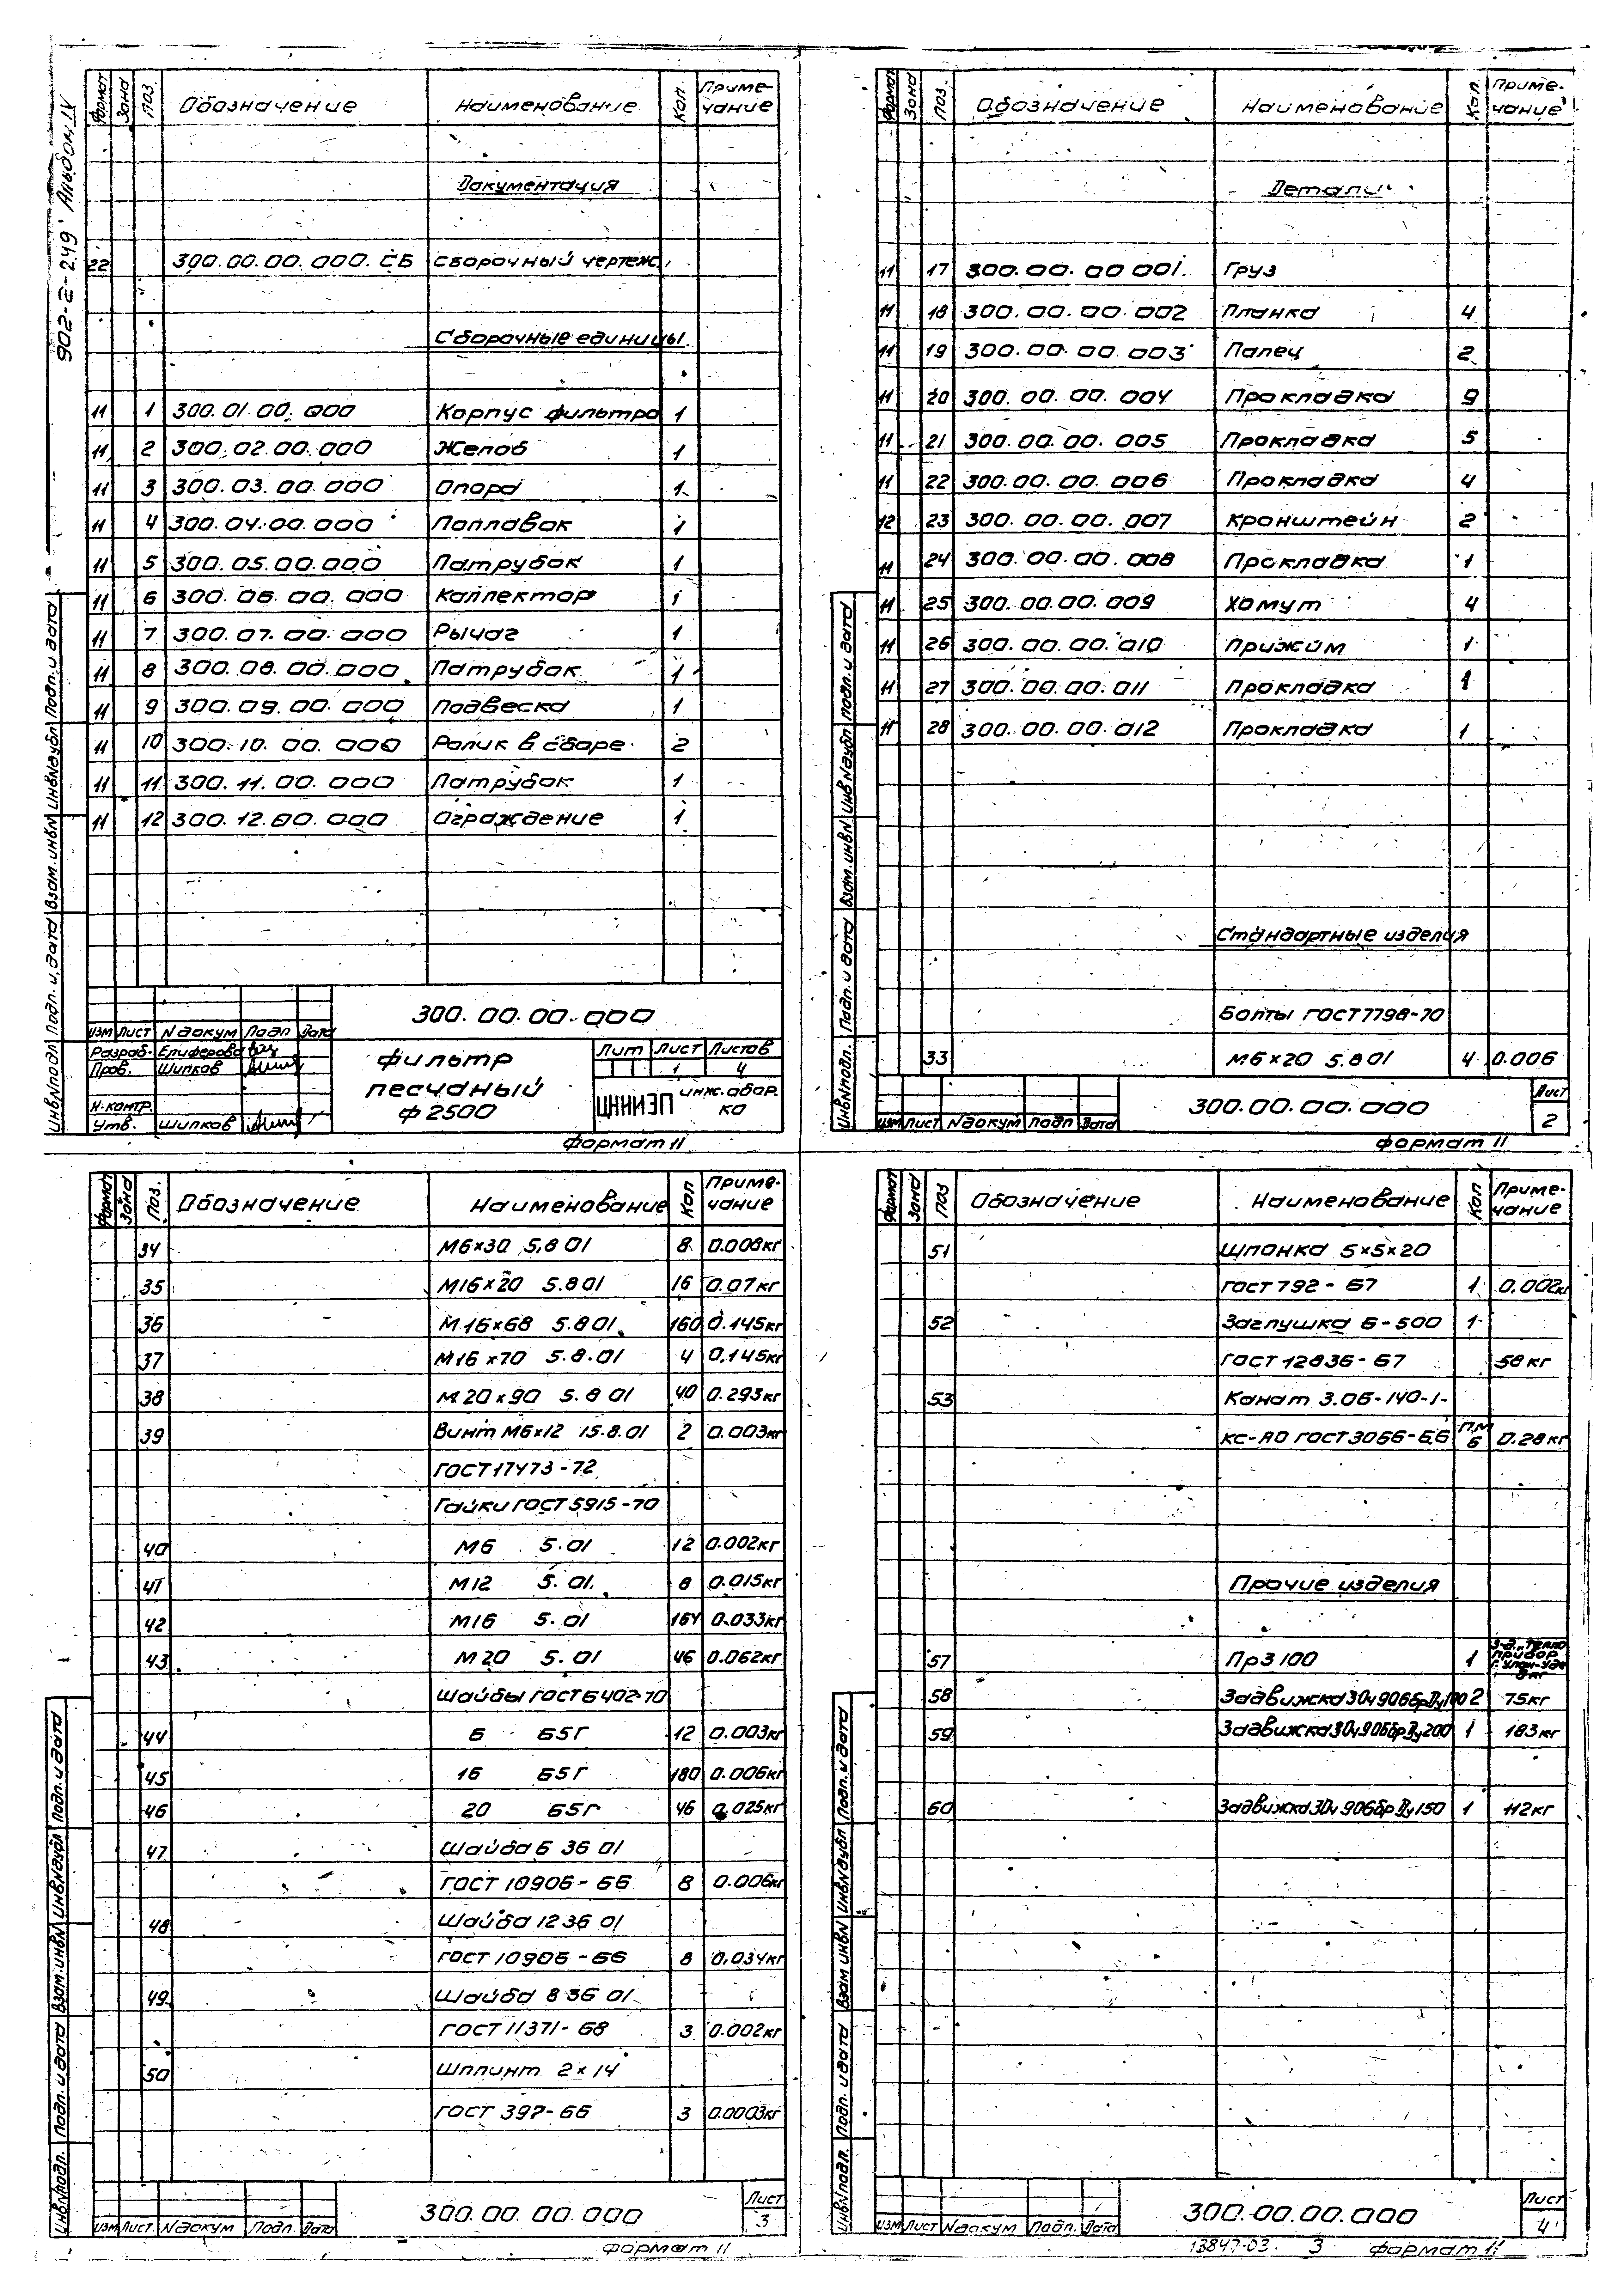 902-2-249 Альбом IV
Формат Зона Поз Обозначение Наименование Кол. Приме-
чание
Документация
22 300.00.00.000.СБ Сборочный чертеж.
Сборочные единицы.
11 1 300.01.00.000 Корпус фильтра 1
11 2 300.02.00.000 Желоб 1
11 3 300.03.00.000 Опора 1
11 4 300.04.00.000 Поплавок 1
11 5 300.05.00.000 Патрубок 1
11 6 300.06.00.000 Коллектор 1
11 7 300.07.00.000 Рычаг 1
11 8 300.08.00.000 Патрубок 1
11 9 300.09.00.000 Подвеска 1
11 10 300.10.00.000 Ролик в сборе 2
11 11 300.11.00.000 Патрубок 1
11 12 300.12.00.000 Ограждение 1
Инв.N подл Подп. и дата Взам. инв.N Инв.N дубл Подп. и дата
300.00.00.000
Изм Лист N докум Подп Дата
Разраб. Елиферова
Пров. Шипков
Н.контр.
Утв. Шипков
Фильтр
песчаный
ф 2500
Лит Лист Листов
1 4
ЦНИИЭП инж.обор.
ка
Формат 11
Формат Зона Поз. Обозначение Наименование Кол. Приме-
чание
Детали
11 17 300.00.00 001. Груз
11 18 300.00.00.002 Планка 4
11 19 300.00.00.003 Палец 2
11 20 300.00.00.004 Прокладка 9
11 21 300.00.00.005 Прокладка 5
11 22 300.00.00.006 Прокладка 4
12 23 300.00.00.007 Кронштейн 2
11 24 300.00.00.008 Прокладка 1
11 25 300.00.00.009 Хомут 4
11 26 300.00.00.010 Прижим 1
11 27 300.00.00.011 Прокладка 1
11 28 300.00.00.012 Прокладка 1
Стандартные изделия
Болты ГОСТ 7798-70
33 М6×20 5.8 01 4 0.006
Инв.N подл. Подп. и дата Взам. инв.N Инв.N дубл Подп. и дата
Изм Лист N докум Подп Дата
300.00.00.000
Лист
2
Формат 11
Формат Зона Поз. Обозначение Наименование Кол Приме-
чание
34 М6×30 5,8 01 8 0.008кг
35 М16×20 5.8 01 16 0.07кг
36 М16×68 5.8 01 160 0.145кг
37 М16×70 5.8.01 4 0,145кг
38 М20×90 5.8 01 40 0.293кг
39 Винт М6×12 15.8.01 2 0.003кг
ГОСТ 17473-72
Гайки ГОСТ 5915-70
40 М6 5.01 12 0.002кг
41 М12 5.01. 8 0.015кг
42 М16 5.01 164 0.033кг
43 М20 5.01 46 0.062кг
Шайбы ГОСТ 6402-70
44 6 65Г 12 0.003кг
45 16 65Г 180 0.006кг
46 20 65Г 46 0.025кг
47 Шайба 6 36 01
ГОСТ 10906-66 8 0.006кг
48 Шайба 12 36 01
ГОСТ 10906-66 8 0.034кг
49 Шайба 8 36 01
ГОСТ 11371-68 3 0.002кг
50 Шплинт 2×14
ГОСТ 397-66 3 0.0003кг
Инв.N подл. Подп. и дата Взам. инв.N Инв.N дубл Подп. и дата
Изм Лист. N докум Подп. Дата
300.00.00.000
Лист
3
Формат 11
Формат Зона Поз Обозначение Наименование Кол Приме-
чание
51 Шпонка 5×5×20
ГОСТ 792-67 1 0.002кг
52 Заглушка 6-500 1
ГОСТ 12836-67 58кг
53 Канат 3.06-140-1-
п.м
КС-ЛО ГОСТ 3066-66 6 0.28кг
Прочие изделия
57 Пр3 100 1 З-д „Тепло
прибор
г. Улан-Удэ
8кг
58 Задвижка 30ч906бр Ду100 2 75кг
59 Задвижка 30ч906бр Ду200 1 183кг
60 Задвижка 30ч906бр Ду150 1 112кг
Инв.N подл. Подп. и дата Взам инв.N Инв.N дубл Подп. и дата
Изм Лист N докум Подп. Дата
300.00.00.000
Лист
4
13847-03 3 Формат 11